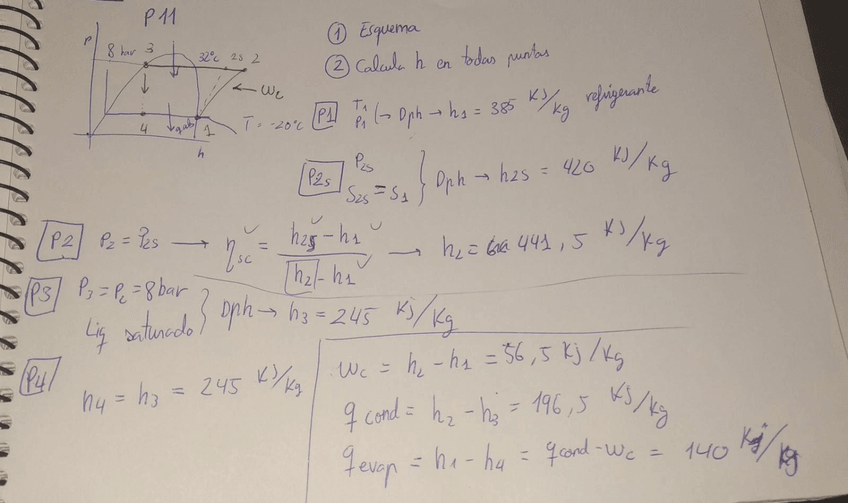 P11
P
8 bar 3 32ºC 2s 2
wc
4 1 T = -20ºC
h
① Esquema
② Calcula h en todas puntas
P1 T1 P1 → Dph → h1 = 385 KJ/Kg refrigerante
P2s P2s S2s = S1 } Dph → h2s = 420 KJ/Kg
P2 P2 = P2s → ηsc = h2s - h1 / h2 - h1 → h2 = 441,5 KJ/Kg
P3 P3 = P2 = 8 bar
Liq saturado } Dph → h3 = 245 KJ/Kg
P4 h4 = h3 = 245 KJ/Kg
wc = h2 - h1 = 56,5 KJ/Kg
q cond = h2 - h3 = 196,5 KJ/Kg
q evap = h1 - h4 = q cond - wc = 140 KJ/Kg